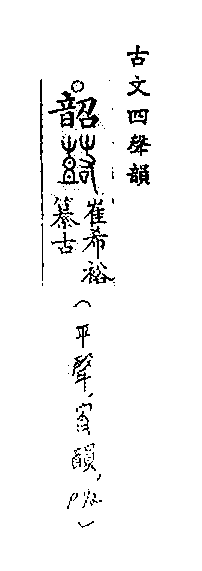 古文四聲韻
○韶
崔希裕
纂古
（平聲，宵韻，